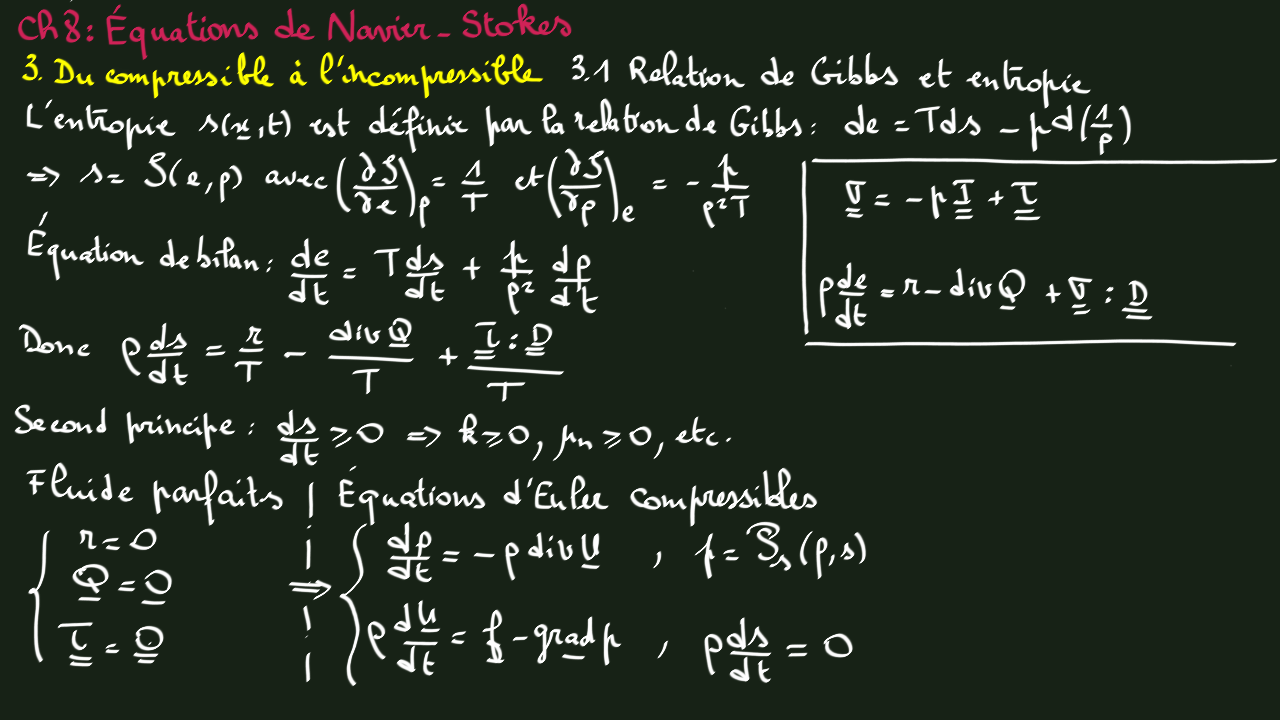 Ch 8: Équations de Navier-Stokes
3. Du compressible à l'incompressible 3.1 Relation de Gibbs et entropie
L'entropie s(x̲,t) est définie par la relation de Gibbs: de = Tds - pd(1/ρ)
⇒ s = S(e,ρ) avec (∂S/∂e)_ρ = 1/T et (∂S/∂ρ)_e = -p/(ρ²T)
σ̲̲ = -p I̲̲ + τ̲̲
Équation de bilan: de/dt = T ds/dt + p/ρ² dρ/dt
ρ de/dt = r - div Q̲ + σ̲̲ : D̲̲
Donc ρ ds/dt = r/T - div Q̲/T + τ̲̲ : D̲̲/T
Second principe: ds/dt ≥ 0 ⇒ k ≥ 0, μn ≥ 0, etc.
Fluide parfaits | Équations d'Euler compressibles
r = 0
dρ/dt = -ρ div U̲ , p = P_s(ρ,s)
Q̲ = 0̲
⇒
τ̲̲ = 0̲̲
ρ dU̲/dt = f̲ - grad p , ρ ds/dt = 0